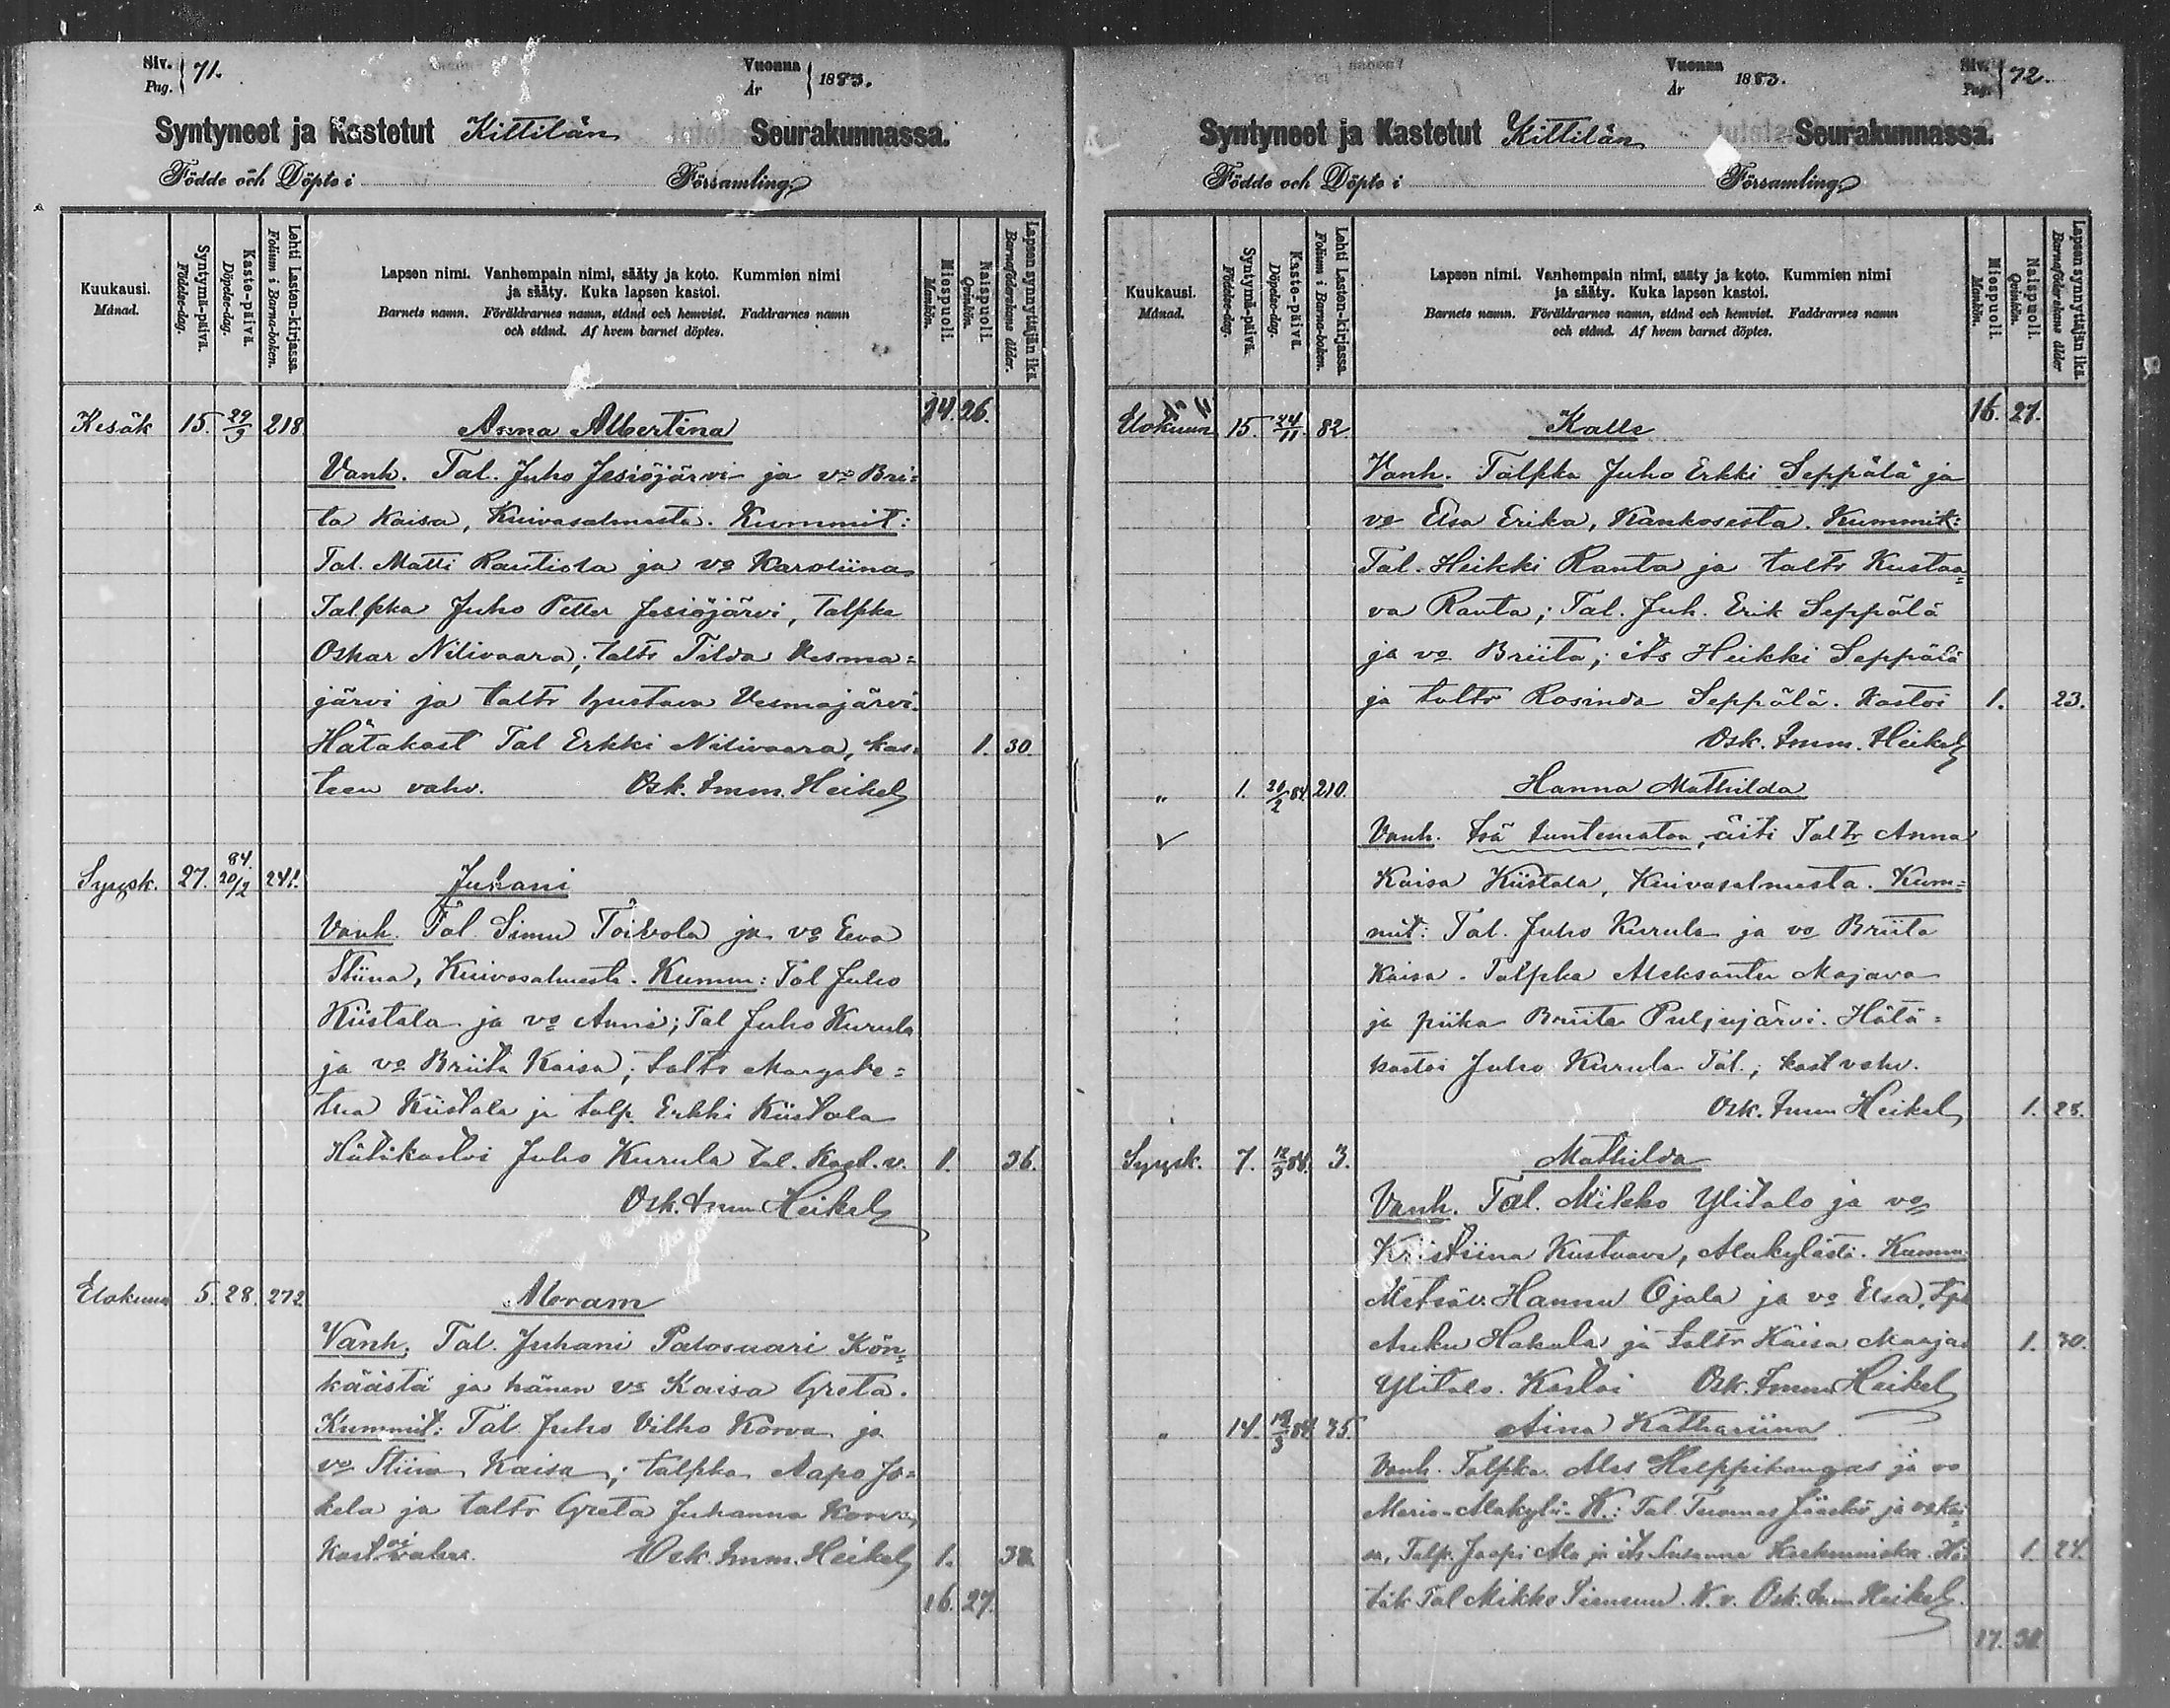 Siv. Pag. } 71.
Vuonna År } 1883.
Syntyneet ja Kastetut Kittilän Seurakunnassa.
Födde och Döpte i Församling.
Kuukausi. Månad.
Syntymä-päivä. Födelse-dag.
Kaste-päivä. Döpelse-dag.
Lehti Lasten-kirjassa. Folium i Barna-boken.
Lapsen nimi. Vanhempain nimi, sääty ja koto. Kummien nimi
ja sääty. Kuka lapsen kastoi.
Barnets namn. Föräldrarnes namn, stånd och hemvist. Faddrarnes namn
och stånd. Af hvem barnet döptes.
Miespuoli. Mankön.
Naispuoli. Qvinkön.
Lapsen synnyttäjän ikä. Barnaföderskans ålder.
14. 26.
Kesäk 15. 29/9 218 Anna Albertina
Vanh. Tal. Juho Jesiöjärvi ja vo Bri=
ta Kaisa, Kuivasalmesta. Kummit:
Tal. Matti Rautiola ja vo Karoliina
Talpka Juho Petter Jesiöjärvi, talpka
Oskar Nilivaara; taltr Tilda Vesma=
järvi ja taltr Gustava Vesmajärvi.
Hätäkast Tal Erkki Nilivaara, kas= 1. 30.
teen vahv. Osk. Imm. Heikel
Syysk. 27. 84. 20/2 241. Juhani
Vanh. Tal. Simu Toivola ja vo Eeva
Stiina, Kuivasalmesta. Kumm: Tal Juho
Kiistala ja vo Anni; Tal Juho Kurula
ja vo Briita Kaisa; taltr Margare=
tha Kiistala ja talp. Erkki Kiistala
Hätäkastoi Juho Kurula tal. Kast. v. 1. 36.
Osk. Imm Heikel
Elokuun 5. 28. 272 Abram
Vanh. Tal. Juhani Palosaari Kön=
käästä ja hänen vo Kaisa Greta.
Kummit: Tal. Juho Vilho Korva ja
vo Stiina Kaisa; talpka Aapo Jo=
kela ja taltr Greta Juhanna Korva,
Osk. Imm. Heikel 1. 38
16. 27.
Vuonna År 1883.
Siv. Pag. } 72.
Syntyneet ja Kastetut Kittilän Seurakunnassa.
Födde och Döpte i Församling.
Kuukausi. Månad.
Syntymä-päivä. Födelse-dag.
Kaste-päivä. Döpelse-dag.
Lehti Lasten-kirjassa. Folium i Barna-boken.
Lapsen nimi. Vanhempain nimi, sääty ja koto. Kummien nimi
ja sääty. Kuka lapsen kastoi.
Barnets namn. Föräldrarnes namn, stånd och hemvist. Faddrarnes namn
och stånd. Af hvem barnet döptes.
Miespuoli. Mankön.
Naispuoli. Qvinkön.
Lapsen synnyttäjän ikä. Barnaföderskans ålder
16. 27.
Elokuun 15. 24/11. 82. Kalle
Vanh. Talpka Juho Erkki Seppälä ja
vo Elsa Erika, Kaukosesta. Kummit:
Tal. Heikki Ranta ja taltr Kustaa=
va Ranta; Tal. Juh. Erik Seppälä
ja vo Briita; its Heikki Seppälä
ja taltr Rosinda Seppälä. Kastoi 1. 23.
Osk. Imm. Heikel
" 1. 20/2 84. 210. Hanna Mathilda
Vanh. Isä tuntematon, äiti Taltr Anna
Kaisa Kiistala, Kuivasalmesta. Kum=
mit: Tal. Juho Kurula ja vo Briita
Kaisa. Talpka Aleksanter Majava
ja piika Briita Puljujärvi. Hätä=
kastoi Juho Kurula Tal.; kast vahv.
Osk. Imm Heikel 1. 28.
Syysk. 7. 12/3 84. 3. Mathilda
Vanh. Tal. Mikko Ylitalo ja vo
Kristiina Kustaava, Alakylästä. Kumm.
Metsäv. Hannu Ojala ja vo Elsa,
Hakala ja taltr Kaisa Marja 1. 30.
Ylitalo. Kastoi Osk. Imm. Heikel
" 14. 12/3 84 35. Aina Kathariina
Vanh. Talpka. Ales Helppikangas ja vo
Maria-Alakylä. K.: Tal. Tuomas Jääskö ja vo Kai
sa, Talp. Jaapi Ala ja its Susanna Hä= 1. 24.
täk Tal Mikko K. v. Osk. Imm Heikel.
17. 30.